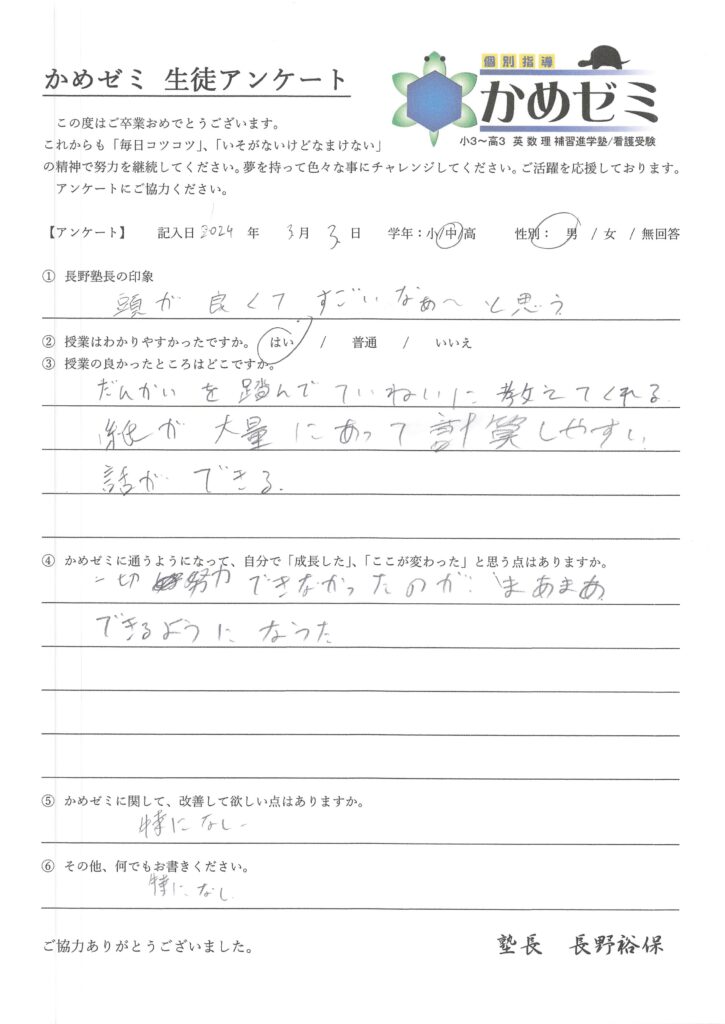 かめゼミ 生徒アンケート
個別指導
かめゼミ
小3~高3 英 数 理 補習進学塾/看護受験
この度はご卒業おめでとうございます。
これからも「毎日コツコツ」、「いそがないけどなまけない」
の精神で努力を継続してください。夢を持って色々な事にチャレンジしてください。ご活躍を応援しております。
アンケートにご協力ください。
【アンケート】 記入日 2024 年 3月 3日 学年:小/中/高 性別: 男 / 女 / 無回答
① 長野塾長の印象
頭が良くてすごいなぁ~と思う
② 授業はわかりやすかったですか。 はい / 普通 / いいえ
③ 授業の良かったところはどこですか。
だんかいを踏んでていねいに教えてくれる.
紙が大量にあって計算しやすい
話ができる.
④ かめゼミに通うようになって、自分で「成長した」、「ここが変わった」と思う点はありますか。
一切努力できなかったのが まあまあ
できるようになった
⑤ かめゼミに関して、改善して欲しい点はありますか。
特になし
⑥ その他、何でもお書きください。
特になし
ご協力ありがとうございました。
塾長 長野裕保